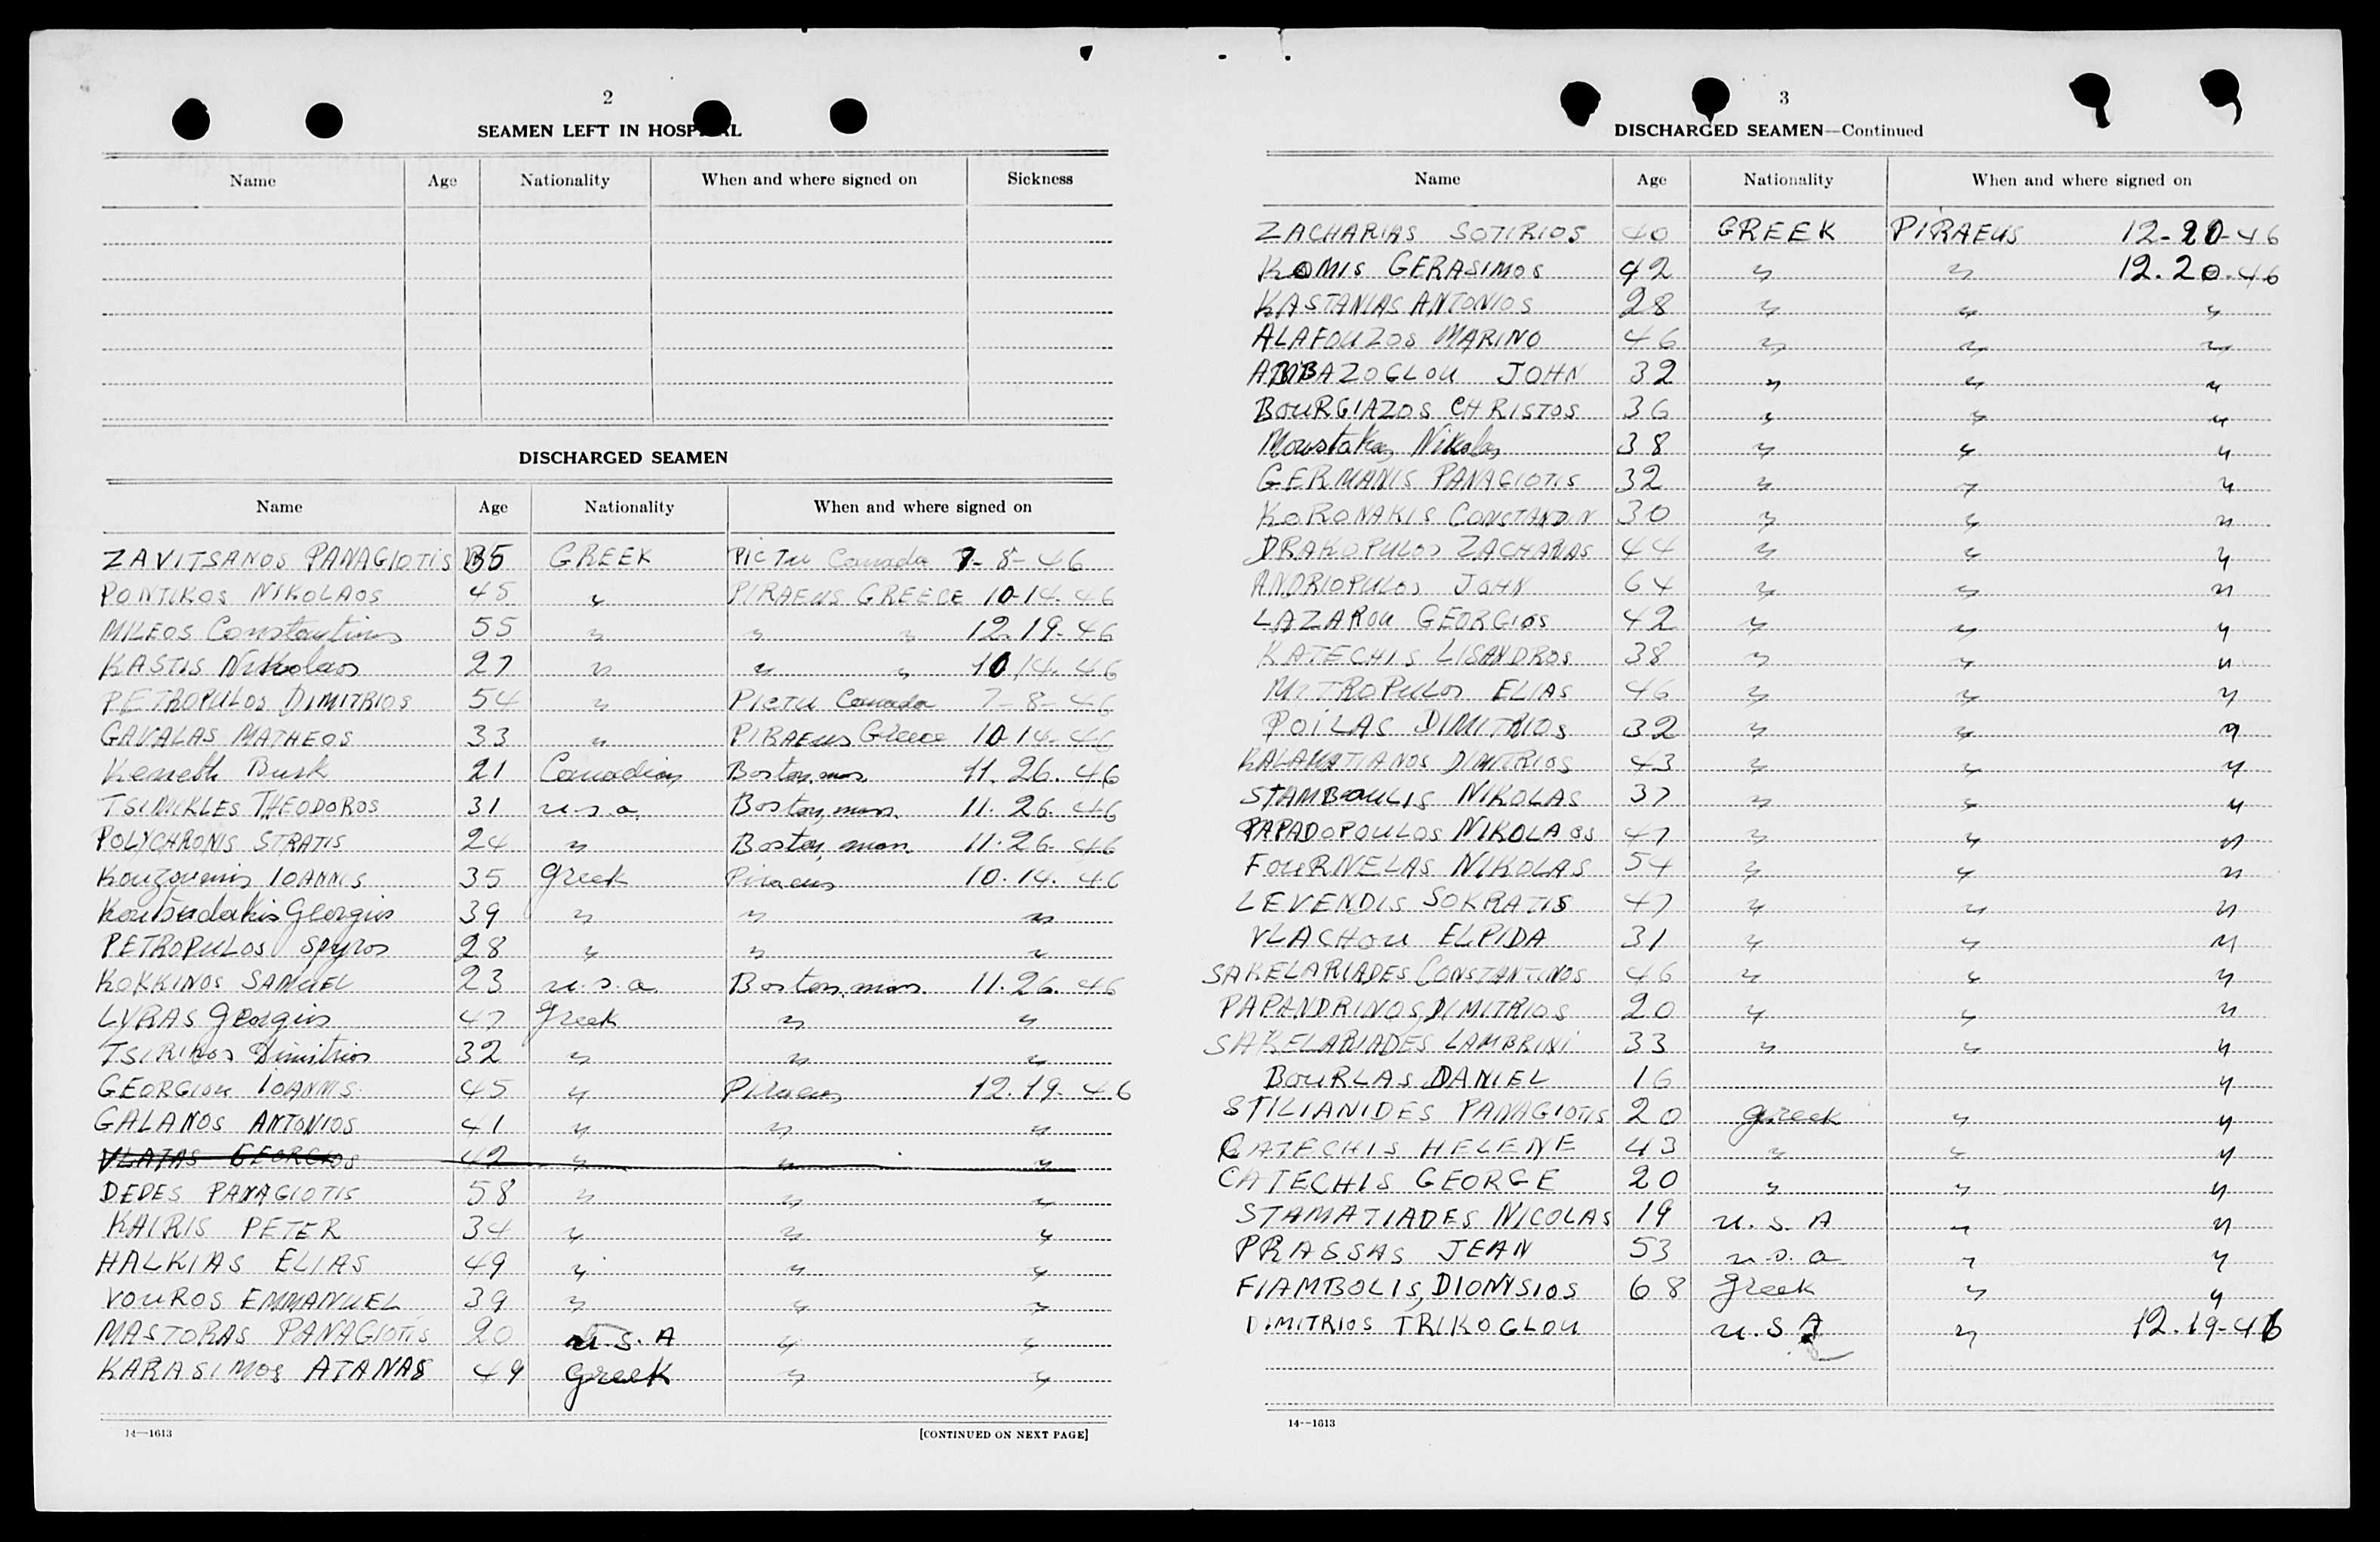 2
SEAMEN LEFT IN HOSPITAL
Name Age Nationality When and where signed on Sickness
DISCHARGED SEAMEN
Name Age Nationality When and where signed on
ZAVITSANOS PANAGIOTIS 35 GREEK PicTu Canada 7-8-46
PONTIKOS NIKOLAOS 45 " PIRAEUS GREECE 10-14.46
MILEOS Constantinos 55 " " " 12.19-46
KASTIS Nikolaos 27 " " " 10.14.46
PETROPULOS DIMITRIOS 54 " PicTu Canada 7-8-46
GAVALAS MATHEOS 33 " PIRAEUS Greece 10 14-46
Keneth Busk 21 Canadian Boston, mas. 11.26.46
TSIMIKLES THEODOROS 31 u.s.a. Boston, mass. 11.26.46
POLYCHRONIS STRATIS 24 " Boston, mass. 11.26-46
IOANNIS 35 greek Piraeus 10.14.46
Georgios 39 " " "
PETROPULOS Spyros 28 " " "
KOKKINOS SAMUEL 23 u.s.a Boston, mass. 11.26.46
LYRAS Georgios 47 greek " "
TSIRIKOS Dimitrios 32 " " "
GEORGIOU IOANNIS. 45 " Piraeus 12.19-46
GALANOS ANTONIOS 41 " " "
VLATAS GEORGIOS 42 " " "
DEDES PANAGIOTIS 58 " " "
KAIRIS PETER 34 " " "
HALKIAS ELIAS 49 " " "
VOUROS EMMANUEL 39 " " "
MASTORAS PANAGIOTIS 20 u.s.A " "
KARASIMOS ATANAS 49 greek " "
14—1613 [CONTINUED ON NEXT PAGE]
3
DISCHARGED SEAMEN—Continued
Name Age Nationality When and where signed on
ZACHARIAS SOTIRIOS 40 GREEK PIRAEUS 12-20-46
KOMIS GERASIMOS 42 " " 12.20.46
KASTANIAS ANTONIOS 28 " " "
ALAFOUZOS MARINO 46 " " "
JOHN 32 " " "
BOURGIAZOS CHRISTOS 36 " " "
Moustakas Nikolas 38 " " "
GERMANIS PANAGIOTIS 32 " " "
KORONAKIS CONSTANDIN 30 " " "
DRAKOPULOS ZACHARIAS 44 " " "
ANDRIOPULOS JOHN 64 " " "
LAZAROU GEORGIOS 42 " " "
KATECHIS LISANDROS 38 " " "
MITROPULOS ELIAS 46 " " "
POILAS DIMITRIOS 32 " " "
KALAMATIANOS DIMITRIOS 43 " " "
STAMBOULIS NIKOLAS 37 " " "
PAPADOPOULOS NIKOLAOS 47 " " "
FOURNELAS NIKOLAS 54 " " "
LEVENDIS SOKRATIS 47 " " "
VLACHOU ELPIDA 31 " " "
SAKELARIADES CONSTANTINOS 46 " " "
PAPANDRINOS, DIMITRIOS 20 " " "
SAKELARIADES LAMBRINI 33 " " "
BOURLAS DANIEL 16 "
STILIANIDES PANAGIOTIS 20 greek " "
CATECHIS HELENE 43 " " "
CATECHIS GEORGE 20 " " "
STAMATIADES NICOLAS 19 u.s.A " "
PRASSAS JEAN 53 u.s.a " "
FIAMBOLIS, DIONYSIOS 68 greek " "
DIMITRIOS TRIKOGLOU u.S A " 12.19-46
14—1613